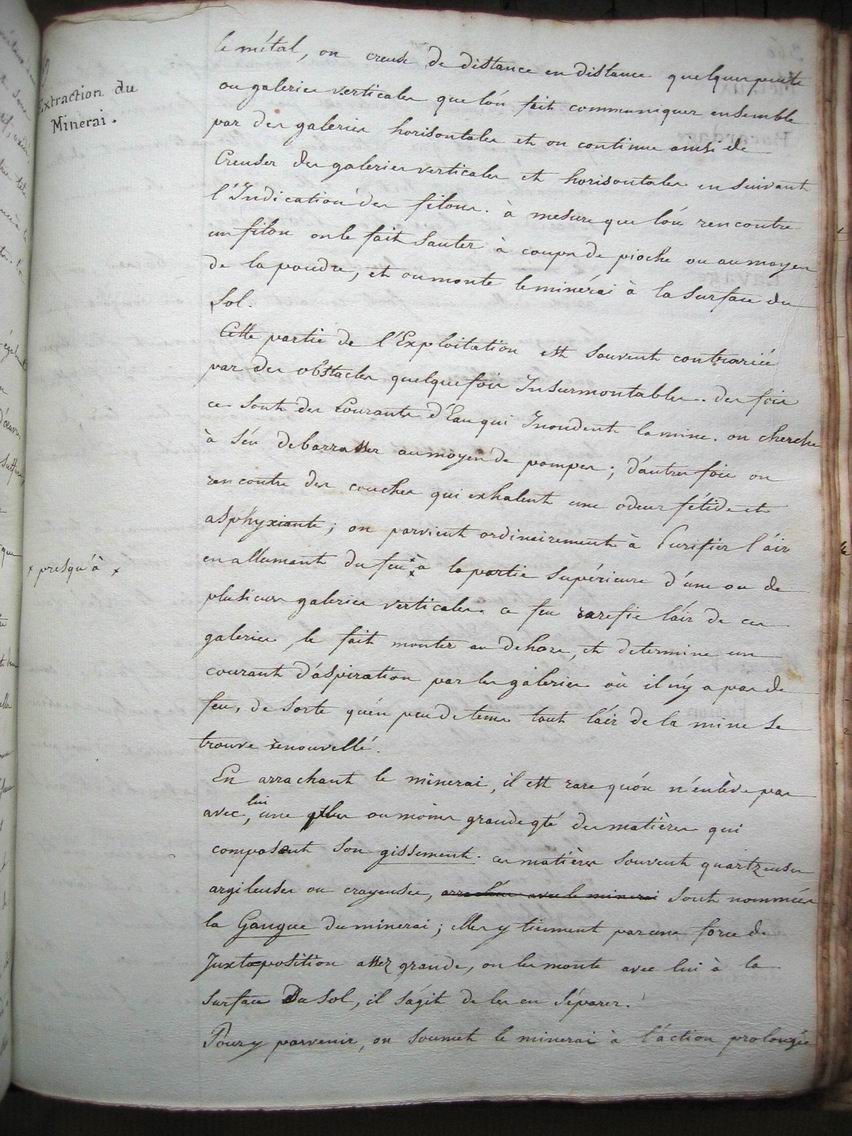 Extraction du
Minerai.
le métal, on creuse de distance en distance quelques puits
ou galeries verticales que l'on fait communiquer ensemble
par des galeries horisontales et on continue ainsi de
Creuser des galeries verticales et horisontales en suivant
l'Indication des filons. à mesure que l'on rencontre
un filon on le fait sauter à coups de pioche ou au moyen
de la poudre, et on monte le minérai à la surface du
sol.
Cette partie de l'Exploitation est souvent contrariée
par des obstacles quelquefois Insurmontables. des fois
ce sont des Courants d'Eau qui Inondent la mine. on cherche
à s'en débarrasser au moyen de pompes; d'autres fois on
rencontre des couches qui exhalent une odeur fétide et
asphyxiante; on parvient ordinairement à Purifier l'air
en allumant du feu x à la partie Supérieure d'une ou de
x presqu'à x
plusieurs galeries verticales ce feu rarefie l'air de ces
galeries, le fait monter au dehors, et determine un
courant d'aspiration par les galeries où il n'y a pas de
feu, de sorte qu'en peu de tems tout l'air de la mine se
trouve renouvellé.
En arrachant le minerai, il est rare qu'on n'enlève pas
avec lui, une plus ou moins grande qté des matières qui
composent son gissement. ces matières souvent quartzeuses
argileuses ou crayeuses, arrachées avec le minerai sont nommées
la Gangue du minerai; elles y tiennent par une force de
Juxtaposition assez grande, on les monte avec lui à la
surface Du sol, il s'agit de les en séparer.
Pour y parvenir, on soumet le minerai à l'action prolongée